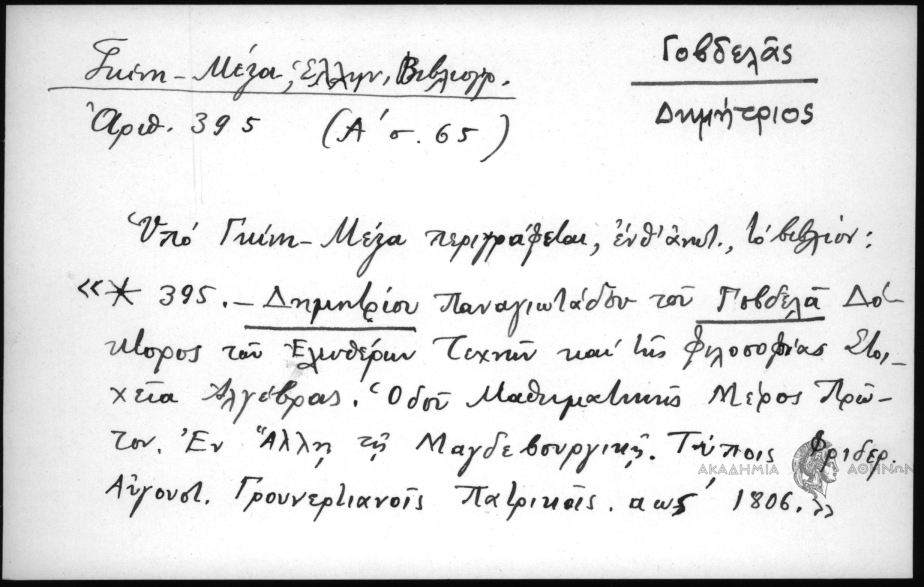 Γκίνη - Μέξα, Ἑλλην. Βιβλιογρ.
Γοβδελᾶς
Ἀριθ. 395 (Α' σ. 65)
Δημήτριος
Ὑπό Γκίνη - Μέξα περιγράφεται, ἐνθ' ἀνωτ., τό βιβλίον:
«* 395. - Δημητρίου Παναγιωτάδου τοῦ Γοβδελᾶ Δό-
κτορος τῶν Ἐλευθερίων Τεχνῶν καί τῆς φιλοσοφίας Στοι-
χεῖα Ἀλγέβρας. Ὁδοῦ Μαθηματικῆς Μέρος Πρῶ-
τον. Ἐν Ἅλλῃ τῇ Μαγδεβουργικῇ. Τύποις Φριδερ.
ΑΚΑΔΗΜΙΑ ΑΘΗΝΩΝ
Αὐγουστ. Γρουνερτιανοῖς Πατρικοῖς. αως' 1806.»